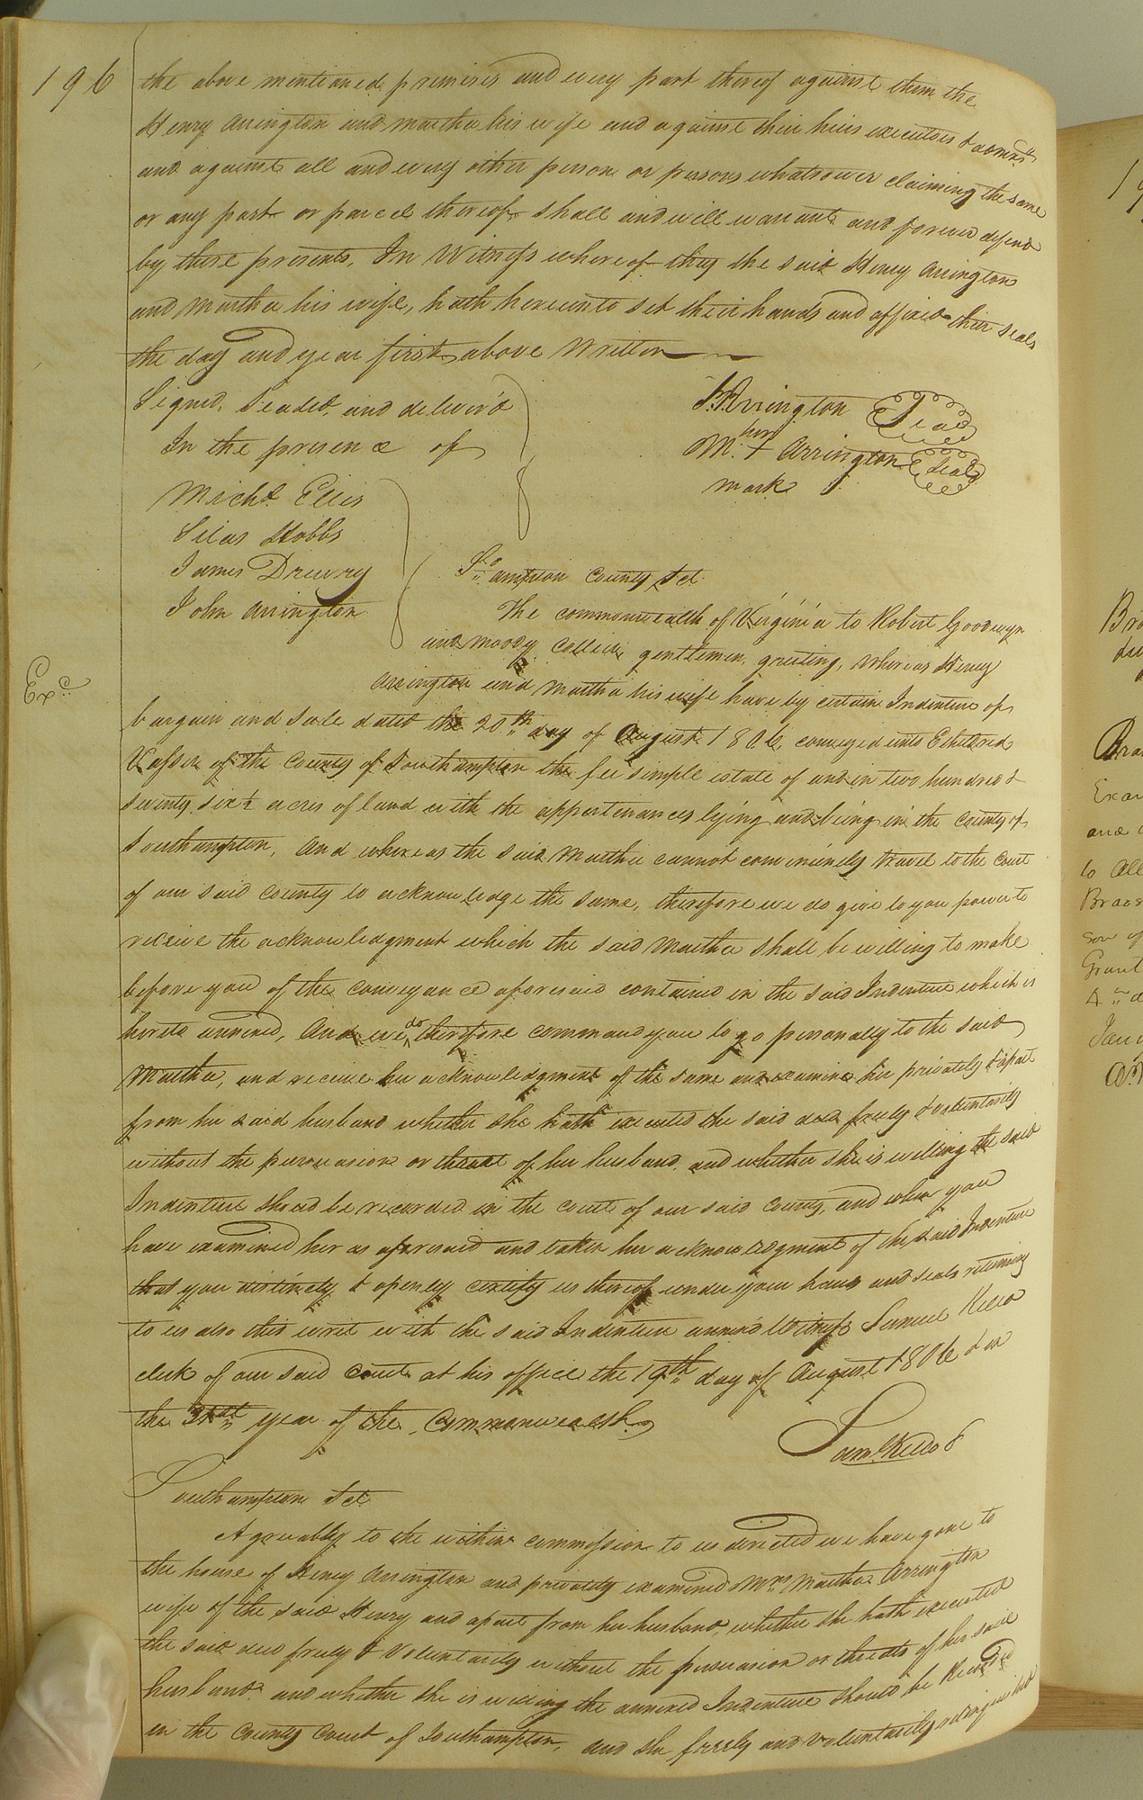 196
the above mentioned premises and every part thereof against them the
Henry Arrington and Martha his wife and against their heirs executors & admrs
and against all and every other person or persons whatsoever claiming the same
or any part or parcel thereof shall and will warrant and forever defend
by these presents. In Witness whereof they the said Henry Arrington
and Martha his wife, hath hereunto set their hands and affixed their seals
the day and year first above written
Signed, Sealed and deliver'd
In the presence of
H. Arrington Seal
her
M. + Arrington Seal
mark
Michl. Ellis
Silas Hobbs
James Drewry
John Arrington
So. ampton County Sct.
The commonwealth of Virginia to Robert Goodwyn
and Moody gentlemen, greeting, whereas Henry
Exd.
Arrington and Martha his wife have by certain Indenture of
bargain and sale dated the 20th day of August 1806 conveyed unto Etheldred
Vasser of the County of Southampton the fee simple estate of and in two hundred &
seventy six acres of land with the appurtinances lying and being in the County of
Southampton, And whereas the said Martha cannot conveniently travel to the Court
of our said County to acknowledge the same, therefore we do give to you power to
receive the acknowledgment which the said Martha shall be willing to make
before you of the conveyance aforesaid contained in the said Indenture which is
hereto annexed, And we do therefore command you to go personally to the said
Martha, and receive her acknowledgment of the same and examine her privately & apart
from her said husband whether she hath executed the said deed freely & voluntarily
without the persuasion or threat of her husband, and whether she is willing the said
Indenture shoud be recorded in the court of our said county, and when you
have examined her as aforesaid and taken her acknowledgment of the said Indenture
that you distinctly & openly certify us thereof under your hands and seals returning
to us also this writ with the said Indenture annex'd Witness Samuel Kello
clerk of our said court at his office the 19th day of August 1806 & in
the 31st year of the Commonwealth
Saml. Kello
Southampton Sct.
Agreeably to the within commission to us directed we have gone to
the house of Henry Arrington and privately examined Mrs Martha Arrington
wife of the said Henry and apart from her husband, whether she hath executed
the said deed freely & Voluntarily without the persuasion or threats of her said
husband, and whether she is willing the annexed Indenture should be Record
in the County Court of Southampton, and she freely and voluntarily